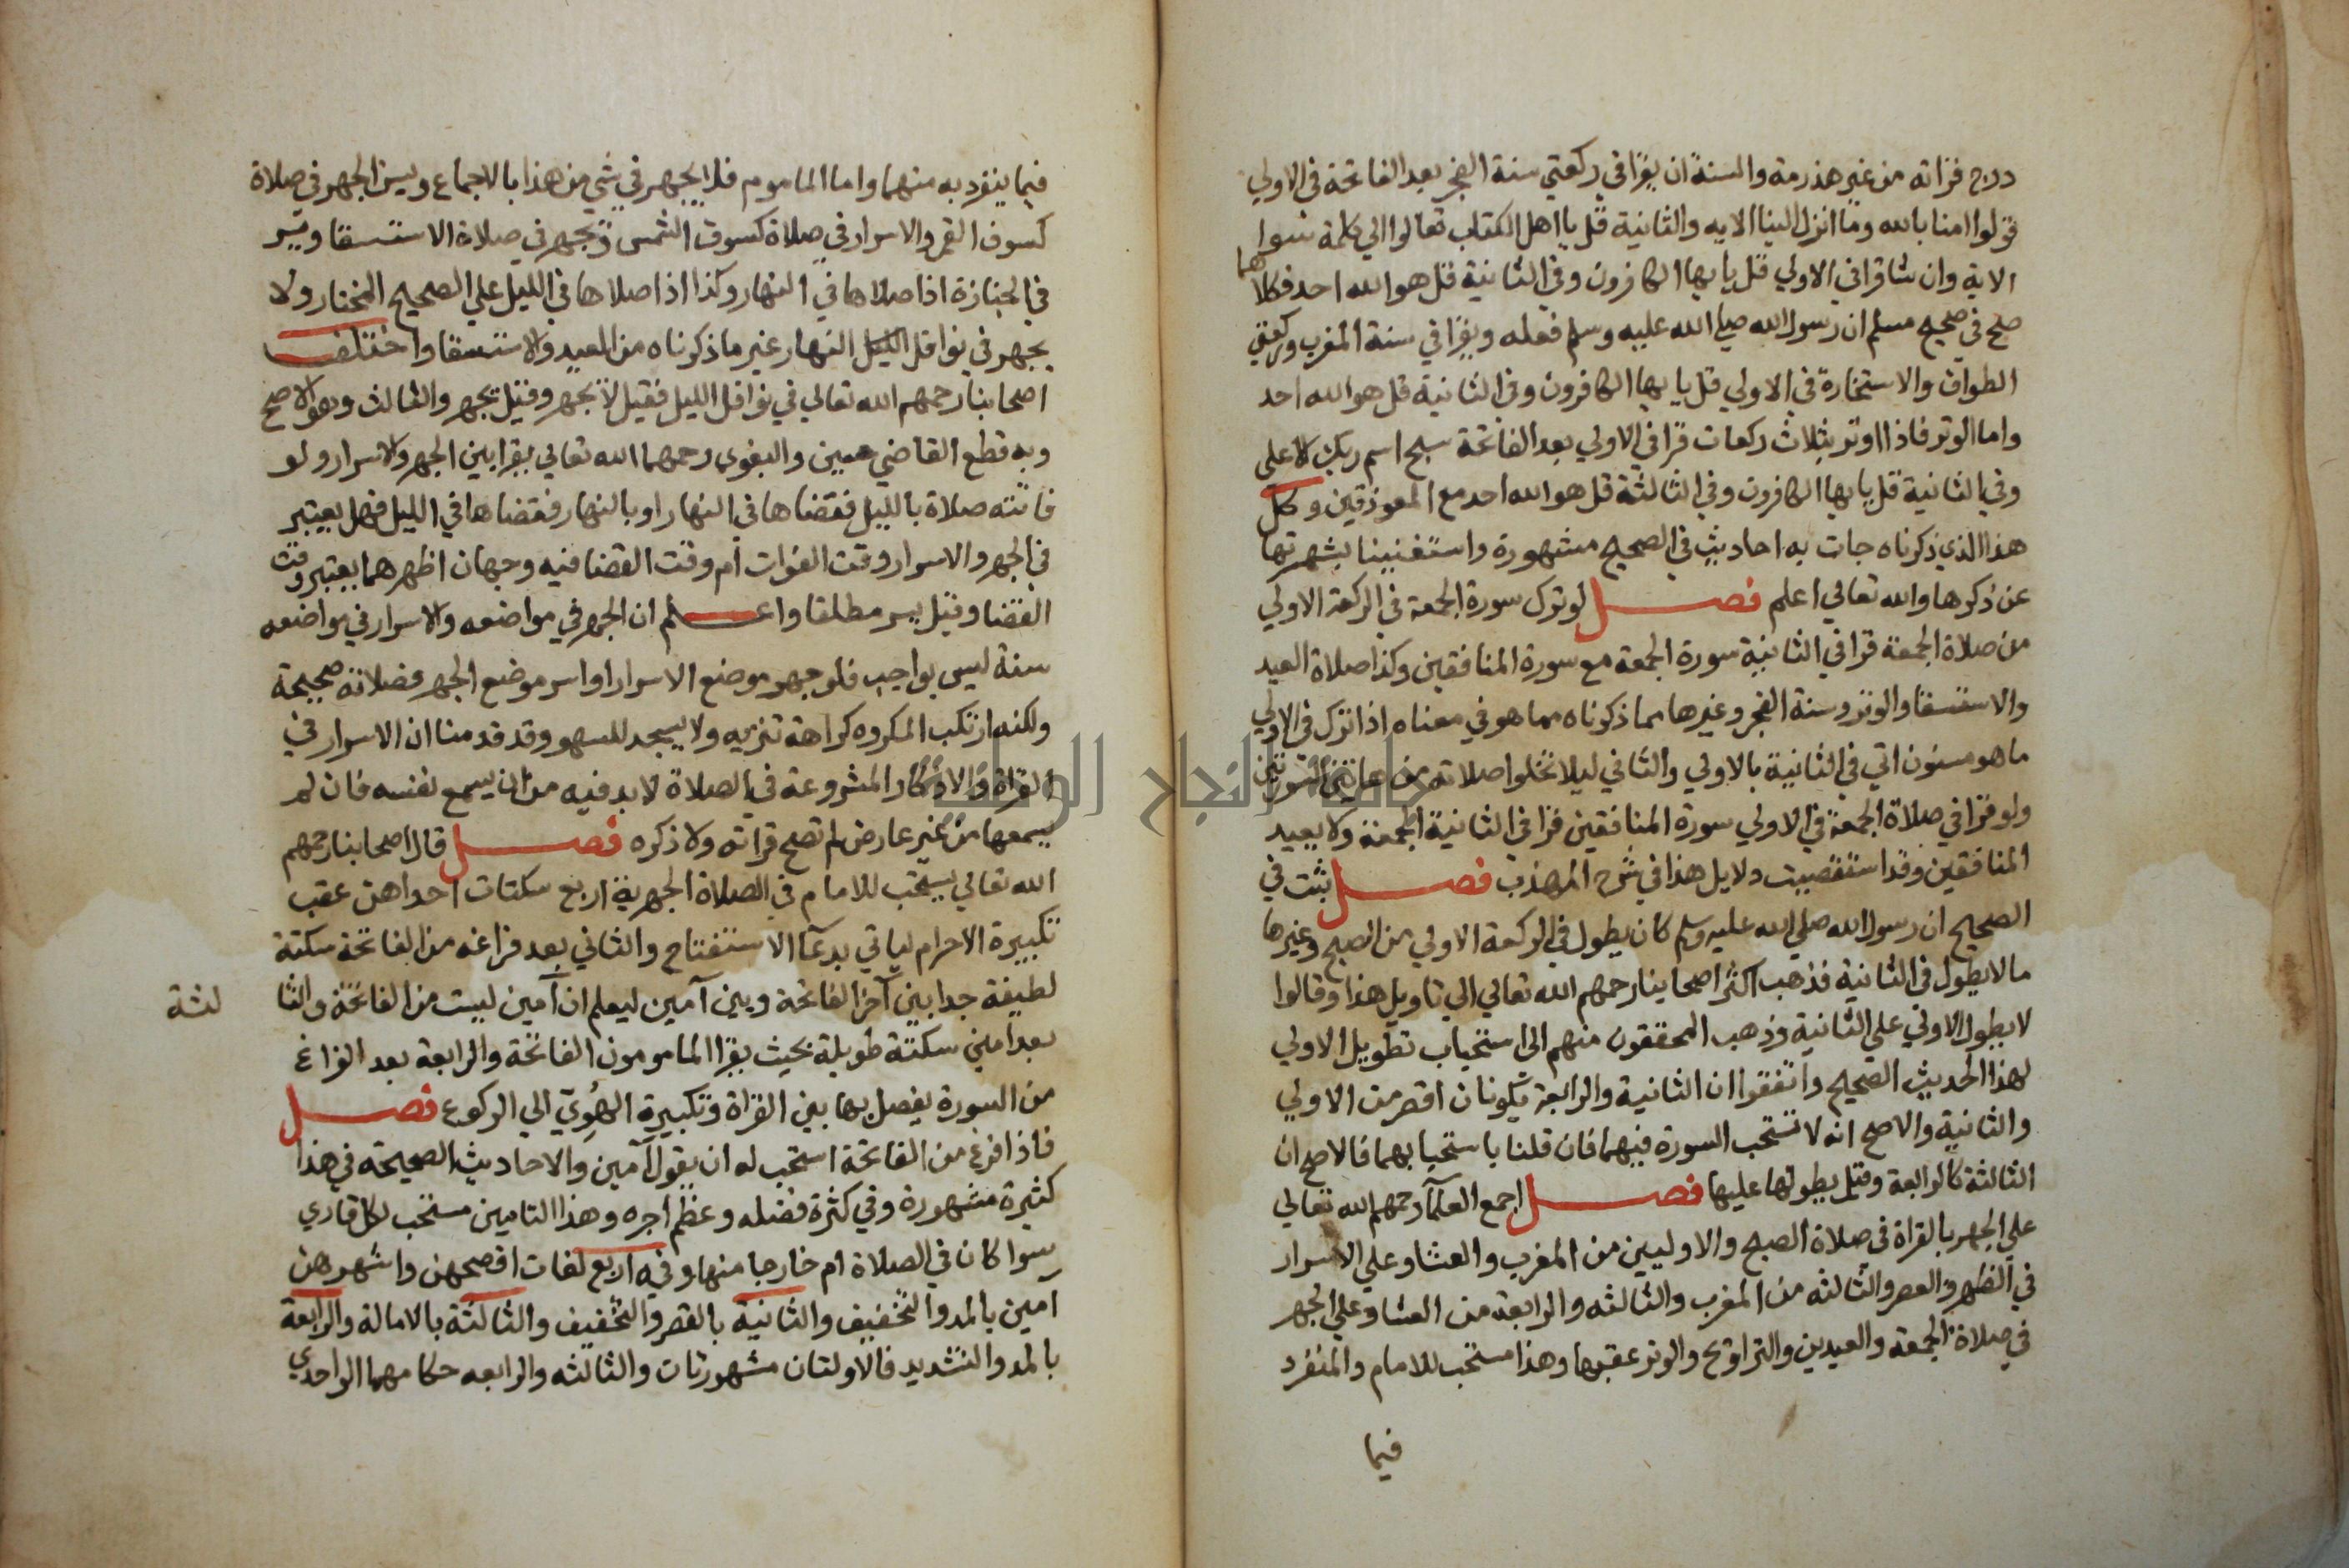 درج قراته من غير هذرمة والسنة ان يقرا في ركعتي سنة الفجر بعد الفاتحة في الاولي
قولوا امنا بالله وما انزل الينا الايه والثانية قل يا اهل الكتاب تعالوا الي كلمة سوا
الاية وان شا قرا في الاولي قل يا يها الكافرون وفي الثانية قل هو الله احد فكلاهما
صح في صحيح مسلم ان رسول الله صلي الله عليه وسلم فعله ويقرا في سنة المغرب وركعتي
الطواف والاستخارة في الاولي قل يا يها الكافرون وفي الثانية قل هو الله احد
واما الوتر فاذا اوتر بثلاث ركعات قرا في الاولي بعد الفاتحة سبح اسم ربك الاعلي
وفي الثانية قل يا يها الكافرون وفي الثالثة قل هو الله احد مع المعوذتين وكل
هذا الذي ذكرناه جات به احاديث في الصحيح مشهورة واستغنينا بشهرتها
عن ذكرها والله تعالي اعلم فصل لو ترك سورة الجمعة في الركعة الاولي
من صلاة الجمعة قرا في الثانية سورة الجمعة مع سورة المنافقين وكذا صلاة العيد
والاستسقا والوتر وسنة الفجر وغيرها مما ذكرناه مما هو في معناه اذا ترك في الاولي
ما هو مسنون اتي في الثانية بالاولي والثاني ليلا تخلوا صلاته من هاتين السورتين
ولو قرا في صلاة الجمعة في الاولي سورة المنافقين قرا في الثانية الجمعة ولا يعيد
المنافقين وقد استقصيت دلايل هذا في شرح المهذب فصل ثبت في
الصحيح ان رسول الله صلي الله عليه وسلم كان يطول في الركعة الاولي من الصبح وغيرها
ما لا يطول في الثانية فذهب اكثر اصحابنا رحمهم الله تعالي الي تاويل هذا وقالوا
لا يطول الاولي علي الثانية وذهب المحققون منهم الى استحباب تطويل الاولي
لهذا الحديث الصحيح واتفقوا ان الثانية والرابعة تكونان اقصر من الاولي
والثانية والاصح انه لا تستحب السورة فيهما فان قلنا باستحبابهما فالاصح ان
الثالثة كالرابعة وقيل يطولها عليها فصل اجمع العلمآ رحمهم الله تعالي
علي الجهر بالقراة في صلاة الصبح والاوليين من المغرب والعشا وعلي الاسرار
في الظهر والعصر والثالثه من المغرب والثالثه والرابعة من العشا وعلي الجهر
في صلاة الجمعة والعيدين والتراويح والوتر عقبها وهذا مستحب للامام والمنفرد
فيما
فيما ينفرد به منهما واما الماموم فلا يجهر في شي من هذا بالاجماع ويسن الجهر في صلاة
كسوف القمر والاسرار في صلاة كسوف الشمس ويجهر في صلاة الاستسقا ويسر
في الجنازة اذا صلاها في النهار وكذا اذا صلاها في الليل علي الصحيح المختار ولا
يجهر في نوافل النهار غير ما ذكرناه من العيد والاستسقا واختلف
اصحابنا رحمهم الله تعالي في نوافل الليل فقيل لا يجهر وقيل يجهر والثالث وهو الاصح
وبه قطع القاضي حسين والبغوي رحمهما الله تعالي يقرا بين الجهر والاسرار ولو
فاتته صلاة بالليل فقضاها في النهار او بالنهار فقضاها في الليل فهل يعتبر
في الجهر والاسرار وقت الفوات ام وقت القضا فيه وجهان اظهرهما يعتبر وقت
القضا وقيل يسر مطلقا واعلم ان الجهر في مواضعه والاسرار في مواضعه
سنة ليس بواجب فلو جهر موضع الاسرار او اسر موضع الجهر فصلاته صحيحة
ولكنه ارتكب المكروه كراهة تنزيه ولا يسجد للسهو وقد قدمنا ان الاسرار في
القراة والاذكار المشروعة في الصلاة لا بد فيه من ان يسمع نفسه فان لم
يسمعها من غير عارض لم تصح قراته ولا ذكره فصل قال اصحابنا رحمهم
الله تعالي يستحب للامام في الصلاة الجهرية اربع سكتات احداهن عقب
تكبيرة الاحرام لياتي بدعآ الاستفتاح والثاني بعد فراغه من الفاتحة سكتة
لطيفة جدا بين آخر الفاتحة وبين آمين ليعلم ان آمين ليست من الفاتحة والثا
لثة
بعد امين سكتة طويلة بحيث يقرا المامومون الفاتحة والرابعة بعد الفراغ
من السورة يفصل بها بين القراة وتكبيرة الهُوِيّ الي الركوع فصل
فاذا فرغ من الفاتحة استحب له ان يقول آمين والاحاديث الصحيحة في هذا
كثيرة مشهورة وفي كثرة فضله وعظم اجره وهذا التامين مستحب لكل قاري
سوا كان في الصلاة ام خارجا منها وفيه اربع لغات افصحهن واشهرهن
آمين بالمد والتخفيف والثانية بالقصر والتخفيف والثالثة بالامالة والرابعة
بالمد والتشديد فالاولتان مشهورتان والثالثه والرابعه حكاهما الواحدي